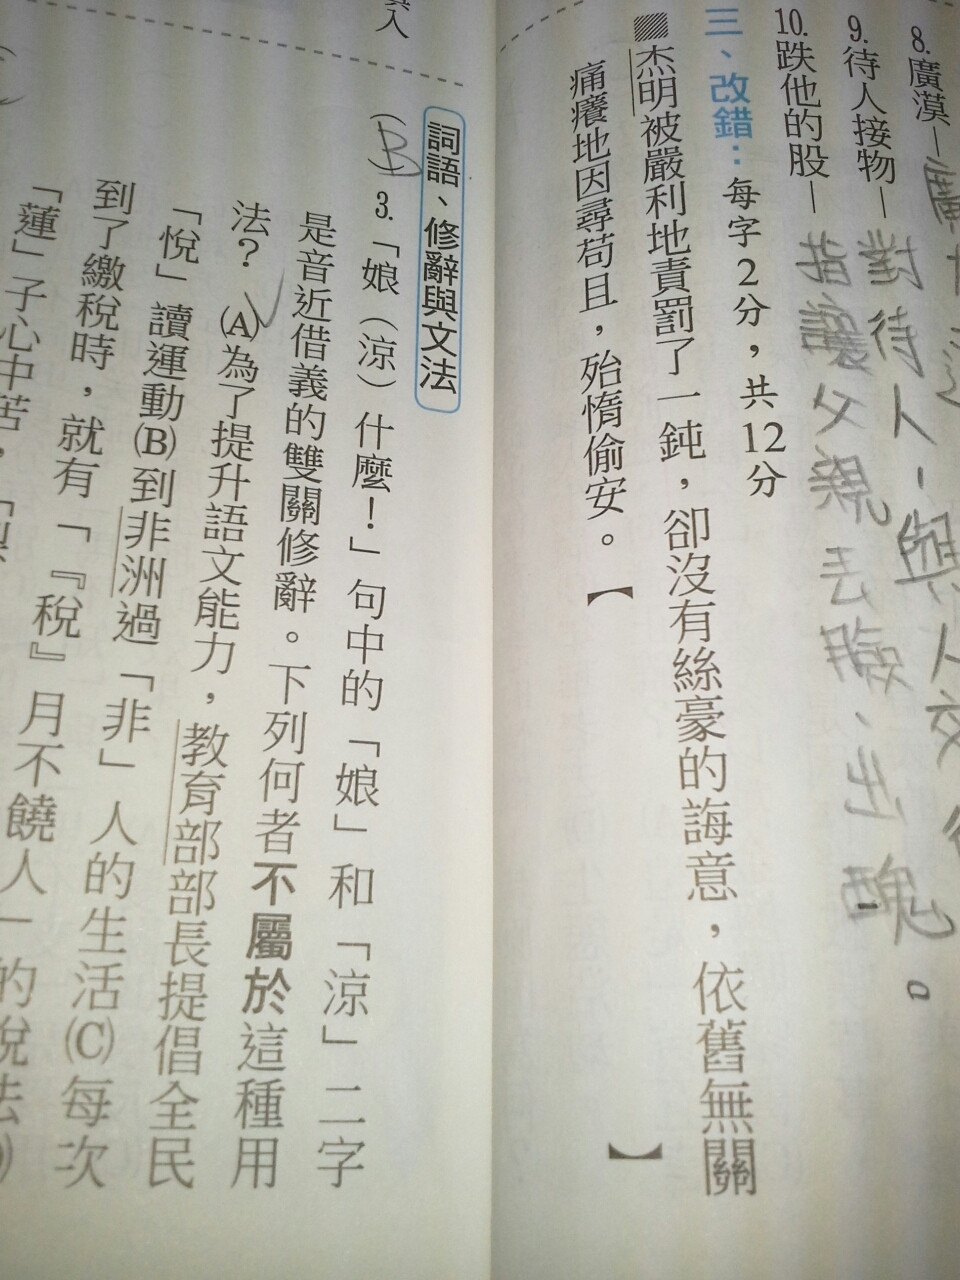 8. 廣漠—廣
9. 待人接物—對待人、與人交
10. 跌他的股—指讓父親丟臉、出醜。
三、改錯：每字2分，共12分
杰明被嚴利地責罰了一鈍，卻沒有絲豪的誨意，依舊無關
痛癢地因尋苟且，殆惰偷安。【 】
詞語、修辭與文法
（B）3.「娘（涼）什麼！」句中的「娘」和「涼」二字
是音近借義的雙關修辭。下列何者不屬於這種用
法？(A)為了提升語文能力，教育部部長提倡全民
「悅」讀運動(B)到非洲過「非」人的生活(C)每次
到了繳稅時，就有「『稅』月不饒人」的說法
「蓮」子心中苦，「